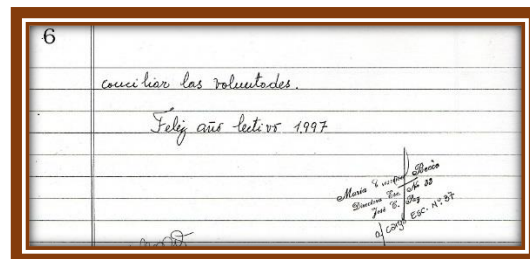 6
conciliar las voluntades.
Feliz año lectivo 1997
Maria
Directora Esc. Nº 33
José C. Paz
a/ cargo ESC. Nº: 37